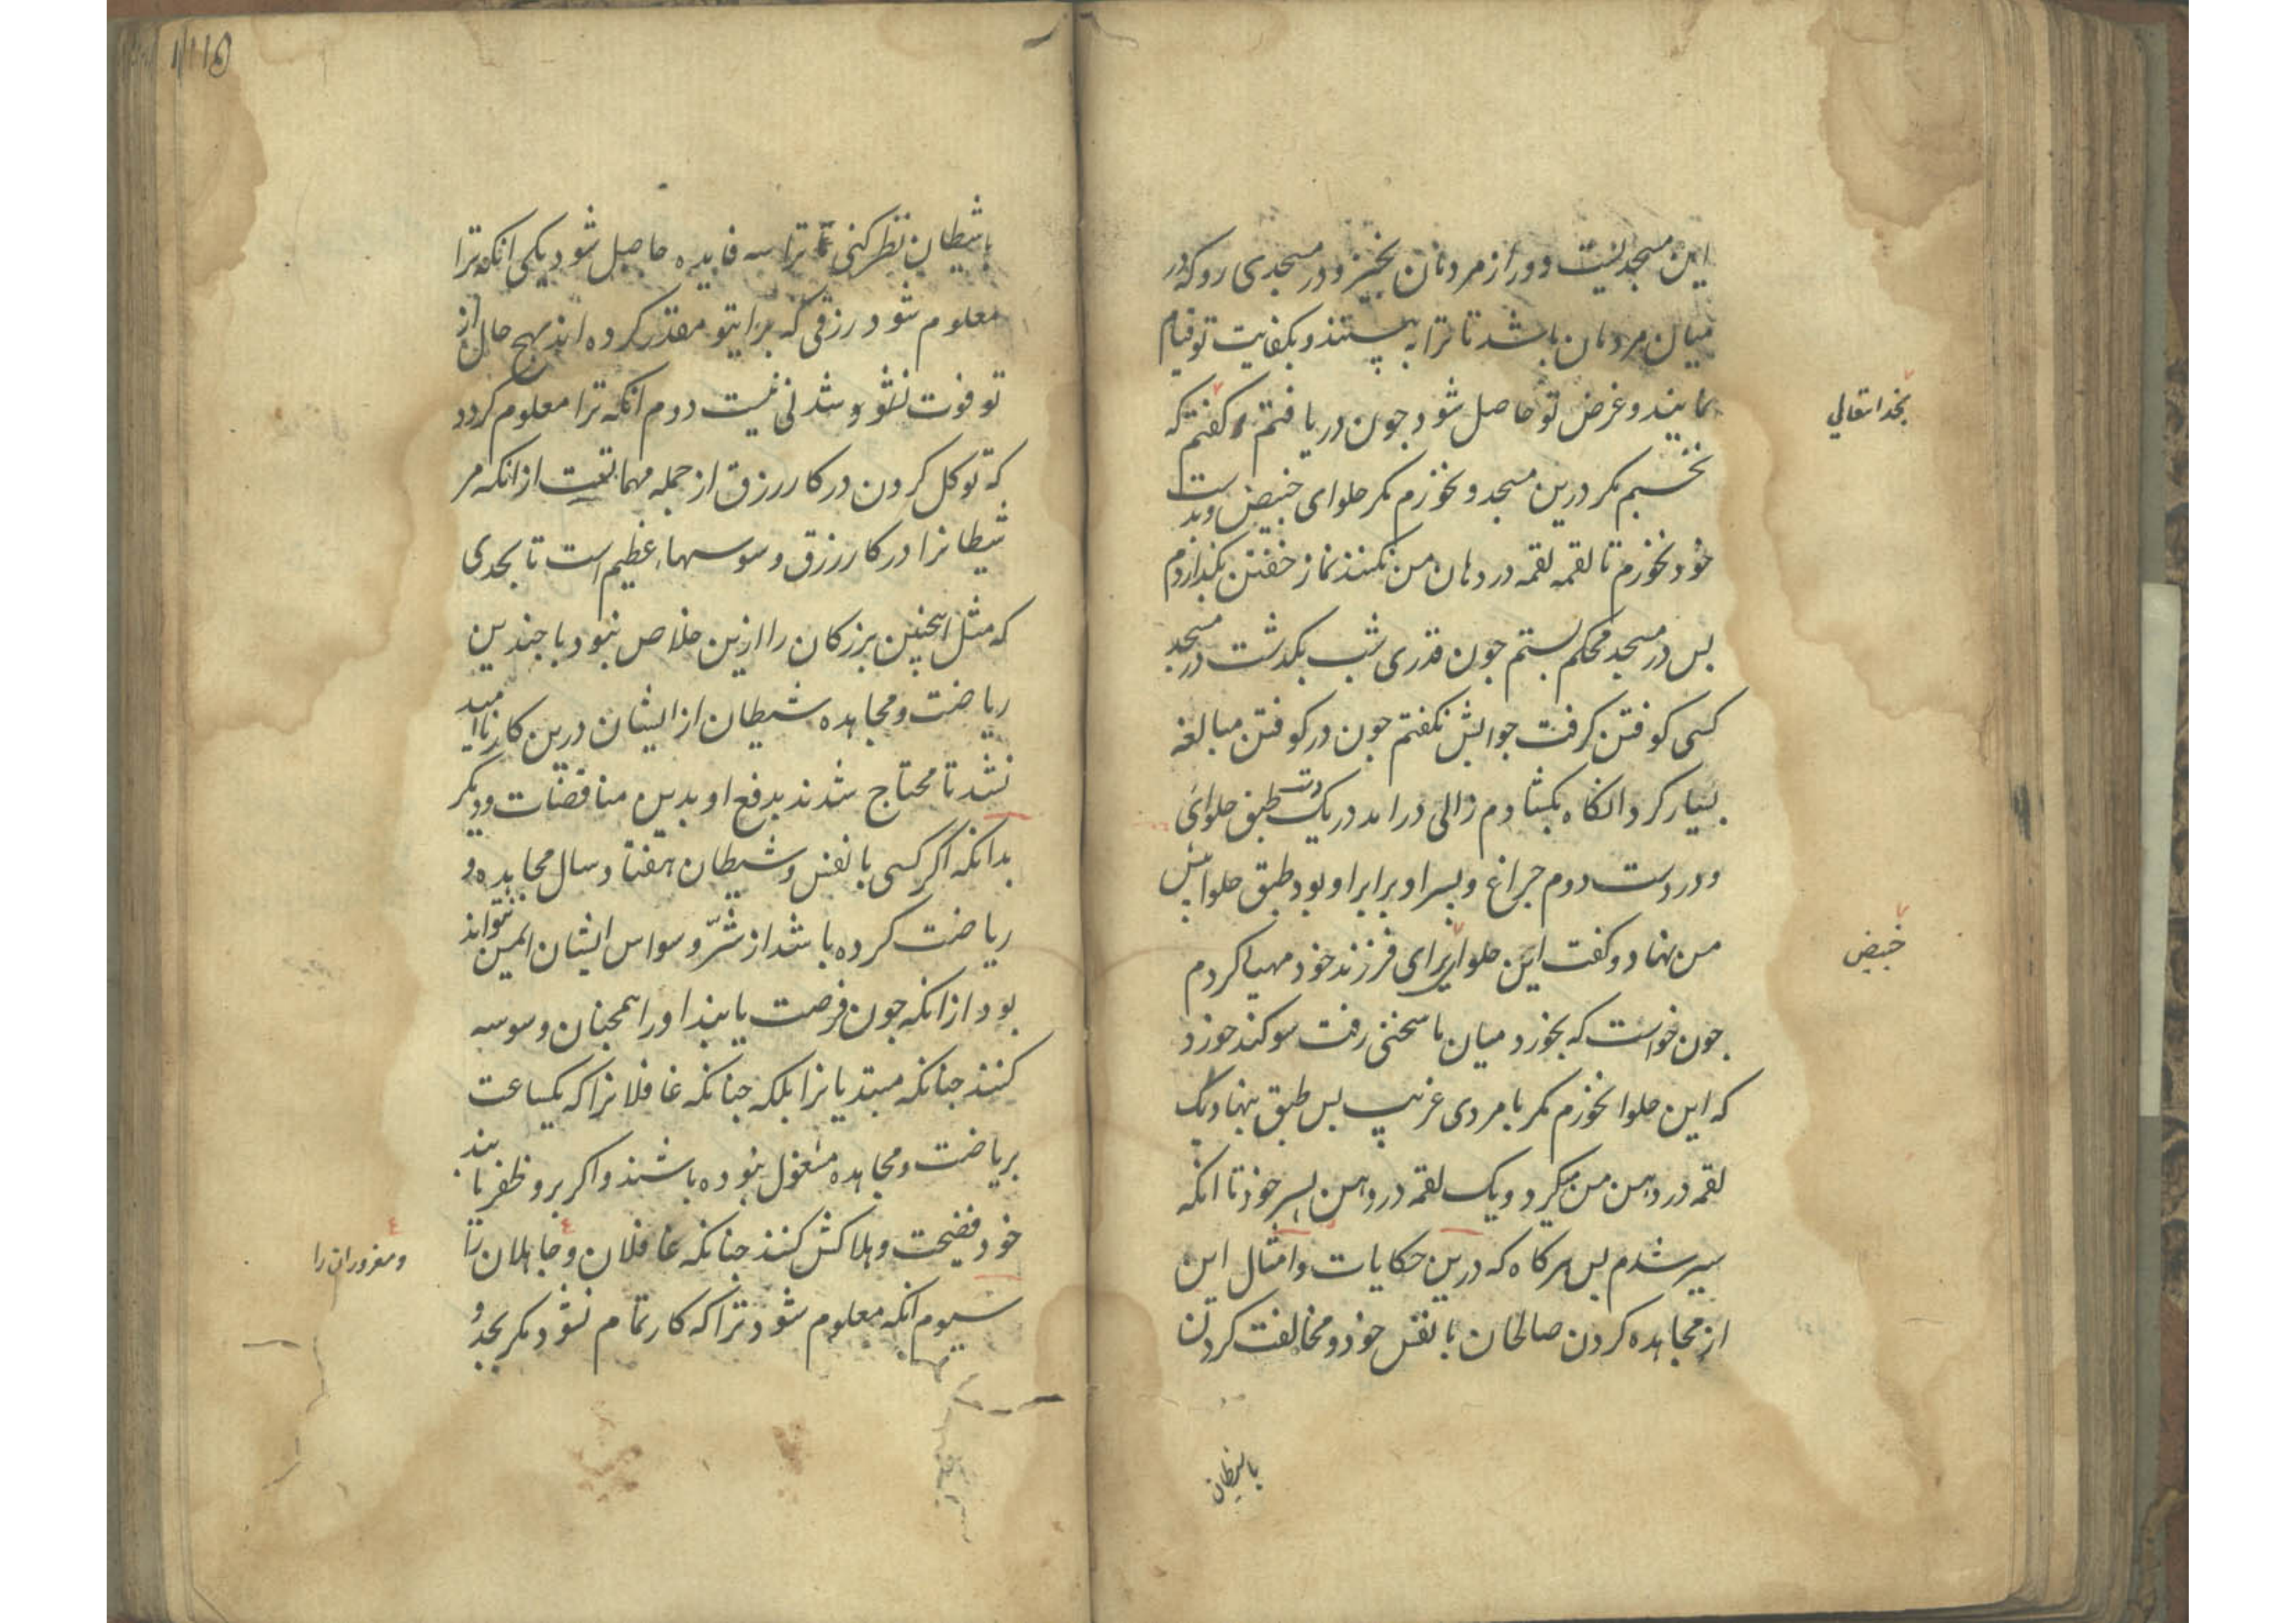 این مسجدیست دور از مردمان بخیز و در مسجدی رو که در
میان مردمان باشد تا ترا به بینند و بکفایت تو قیام
نمایند و غرض تو حاصل شود جون دریافتم کفتم که
بخدایتعالی
نخسبم مکر درین مسجد و نخورم مکر حلوای خبیص و بدست
خود نخورم تا لقمه لقمه در دهان من نکنند نماز خفتن بکذاردم
بس در مسجد محکم ببستم جون قدری شب بکذشت در مسجد
کسی کوفتن کرفت جوابش نکفتم جون در کوفتن مبالغه
بسیار کرد انکاه بکشادم زالی درامد در یک دست طبق حلوای
خبیص
و در دست دوم جراغ و بسر او برابر او بود طبق حلوا پیش
من نهاد و کفت این حلوا برای فرزند خود مهیا کردم
جون خواست که بخورد میان ما سخنی رفت سوکند خورد
که این حلوا نخورم مکر با مردی غریب بس طبق بنهاد و یک
لقمه در دهن من میکرد و یک لقمه در دهن پسر خود تا انکه
سیر شدم بس هرکاه که درین حکایات و امثال این
از مجاهده کردن صالحان با نفس خود و مخالفت کردن
با شیطان
با شیطان نظر کنی ترا سه فایده حاصل شود یکی انکه ترا
معلوم شود رزقی که برای تو مقدر کرده اند بهیج حال از
تو فوت نشود و شدنی نیست دوم انکه ترا معلوم کردد
که توکل کردن در کار رزق از جمله مهماتست از انکه مر
شیطانرا در کار رزق وسوسهاء عظیم است تا بحدی
که مثل اینجنین بزرکان را ازین خلاص نبود با جندین
ریاضت و مجاهده شیطان از ایشان درین کار ناامید
نشد تا محتاج شدند بدفع او بدین مناقضات و دیکر
بدانکه اکر کسی با نفس و شیطان هفتاد سال مجاهده و
ریاضت کرده باشد از شرّ وسواس ایشان ایمن نتواند
بود از انکه جون فرصت یابند اورا همجنان وسوسه
کنند جنانکه مبتدیانرا بلکه جنانکه غافلانرا که یکساعت
بریاضت و مجاهده مشغول نبوده باشند و اکر برو ظفر یابند
خود فضیحت و هلاکش کنند جنانکه غافلان و جاهلان را
و مغروران را
سیوم انکه معلوم شود ترا که کار تمام نشود مکر بجد و